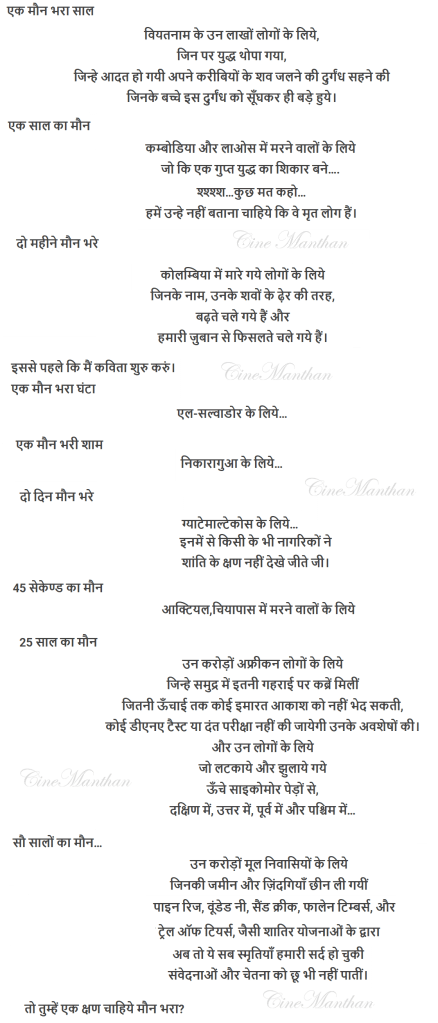 एक मौन भरा साल
वियतनाम के उन लाखों लोगों के लिये,
जिन पर युद्ध थोपा गया,
जिन्हे आदत हो गयी अपने करीबियों के शव जलने की दुर्गंध सहने की
जिनके बच्चे इस दुर्गंध को सूँघकर ही बड़े हुये।
एक साल का मौन
कम्बोडिया और लाओस में मरने वालों के लिये
जो कि एक गुप्त युद्ध का शिकार बने….
श्श्श्श…कुछ मत कहो…
हमें उन्हे नहीं बताना चाहिये कि वे मृत लोग हैं।
दो महीने मौन भरे
Cine Manthan
कोलम्बिया में मारे गये लोगों के लिये
जिनके नाम, उनके शवों के ढ़ेर की तरह,
बढ़ते चले गये हैं और
हमारी जुबान से फिसलते चले गये हैं।
इससे पहले कि मैं कविता शुरु करुं।
CineManthan
एक मौन भरा घंटा
एल-सल्वाडोर के लिये…
एक मौन भरी शाम
निकारागुआ के लिये…
CineManthan
दो दिन मौन भरे
ग्याटेमाल्टेकोस के लिये…
इनमें से किसी के भी नागरिकों ने
शांति के क्षण नहीं देखे जीते जी।
45 सेकेण्ड का मौन
आक्टियल,चियापास में मरने वालों के लिये
25 साल का मौन
उन करोड़ों अफ्रीकन लोगों के लिये
जिन्हे समुद्र में इतनी गहराई पर कब्रें मिलीं
जितनी ऊँचाई तक कोई इमारत आकाश को नहीं भेद सकती,
कोई डीएनए टैस्ट या दंत परीक्षा नहीं की जायेगी उनके अवशेषों की।
और उन लोगों के लिये
जो लटकाये और झुलाये गये
CineManthan
ऊँचे साइकोमोर पेड़ों से,
दक्षिण में, उत्तर में, पूर्व में और पश्चिम में…
सौ सालों का मौन…
उन करोड़ों मूल निवासियों के लिये
जिनकी जमीन और ज़िंदगियाँ छीन ली गयीं
पाइन रिज, वूंडेड नी, सैंड क्रीक, फालेन टिम्बर्स, और
ट्रेल ऑफ टियर्स, जैसी शातिर योजनाओं के द्वारा
अब तो ये सब स्मृतियाँ हमारी सर्द हो चुकी
संवेदनाओं और चेतना को छू भी नहीं पातीं।
CineManthan
तो तुम्हें एक क्षण चाहिये मौन भरा?